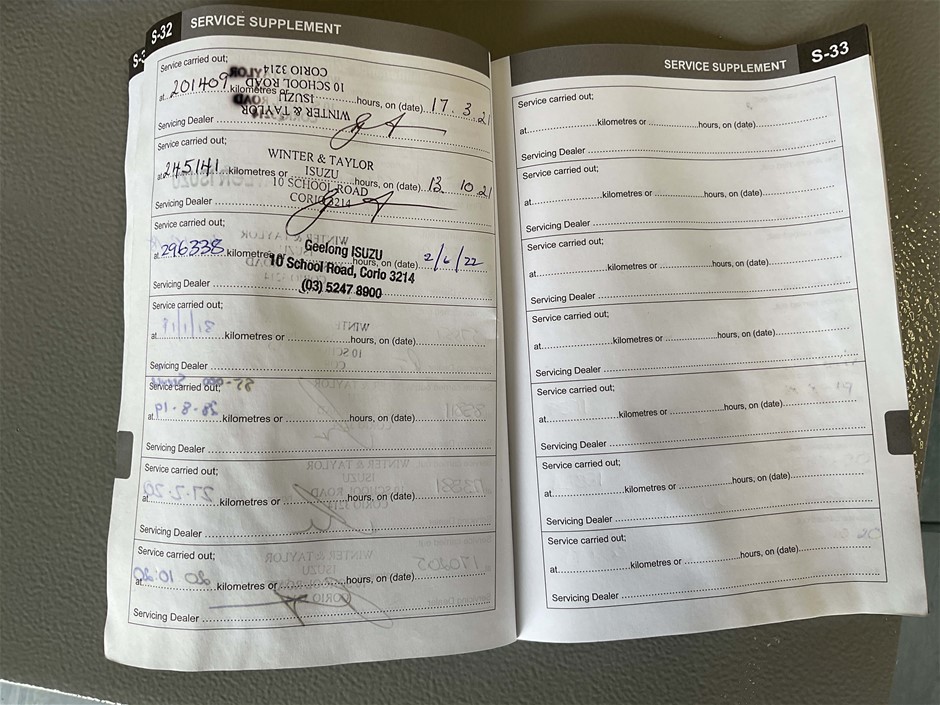 S-3
S-32 SERVICE SUPPLEMENT
Service carried out;
at 201409 kilometres or hours, on (date) 17.3.21
WINTER & TAYLOR
ISUZU
10 SCHOOL ROAD
CORIO 3214
Servicing Dealer
Service carried out;
WINTER & TAYLOR
ISUZU
at 245141 kilometres or hours, on (date) 13 10.21
10 SCHOOL ROAD
CORIO 3214
Servicing Dealer
Service carried out;
at 296338 kilometres hours, on (date) 2/6/22
Geelong ISUZU
10 School Road, Corio 3214
(03) 5247 8900
Servicing Dealer
Service carried out;
at kilometres or hours, on (date)
Servicing Dealer
Service carried out;
at kilometres or hours, on (date)
Servicing Dealer
Service carried out;
at kilometres or hours, on (date)
Servicing Dealer
Service carried out;
at kilometres or hours, on (date)
Servicing Dealer
SERVICE SUPPLEMENT S-33
Service carried out;
at kilometres or hours, on (date)
Servicing Dealer
Service carried out;
at kilometres or hours, on (date)
Servicing Dealer
Service carried out;
at kilometres or hours, on (date)
Servicing Dealer
Service carried out;
at kilometres or hours, on (date)
Servicing Dealer
Service carried out;
at kilometres or hours, on (date)
Servicing Dealer
Service carried out;
at kilometres or hours, on (date)
Servicing Dealer
Service carried out;
at kilometres or hours, on (date)
Servicing Dealer